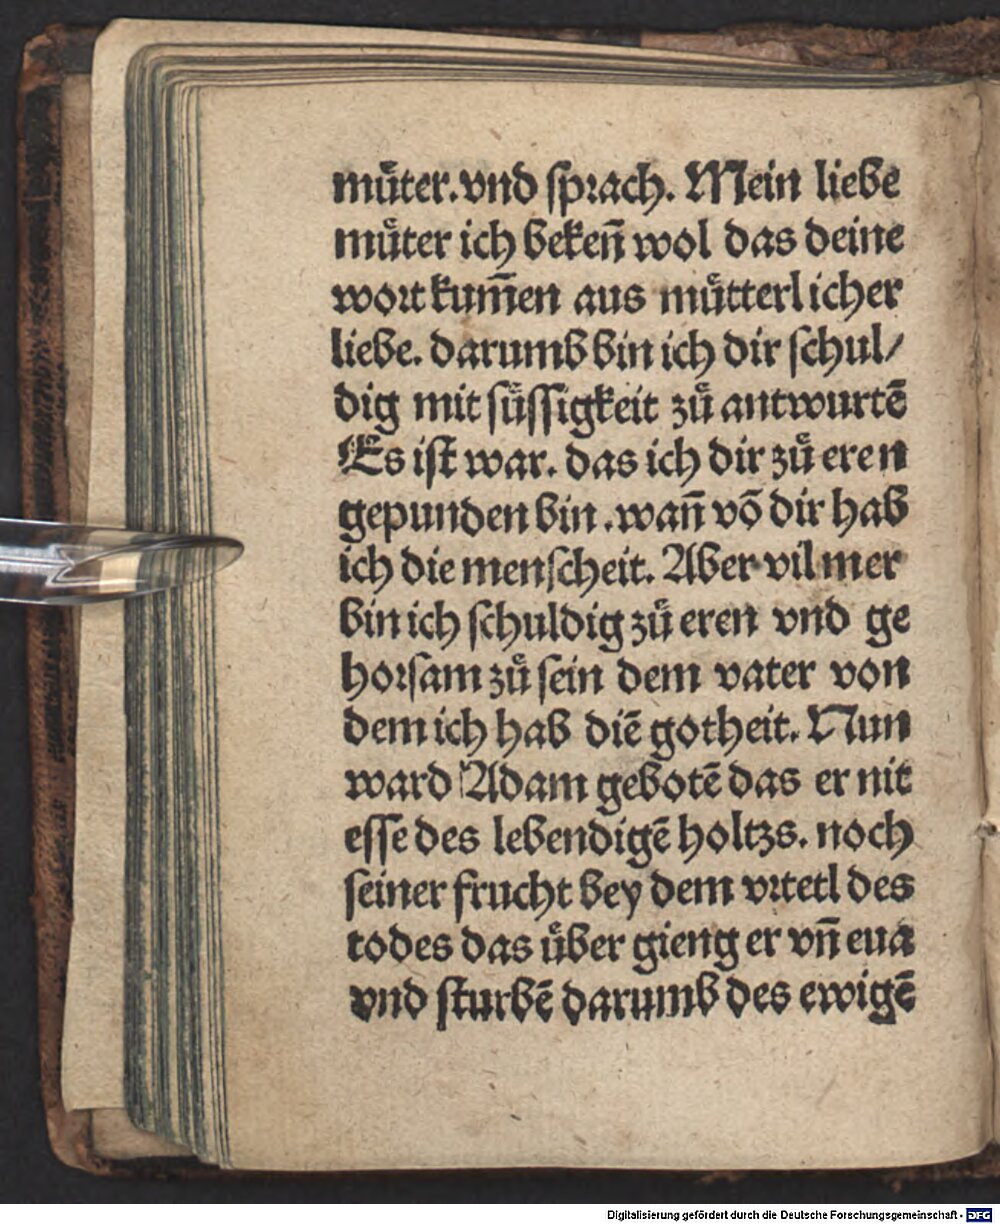 muͤter. vnd ſpꝛach. Mein liebe
muͤter ich beken̄ wol das deine
woꝛt kum̄en aus muͤtterlicher
liebe. darumb bin ich dir ſchul/
dig mit ſuͤſſigkeit zuͤ antwurtē
Es iſt war. das ich dir zuͤ eren
gepunden bin. wan̄ vō dir hab
ich die menſcheit. Aber vil mer
bin ich ſchuldig zuͤ eren vnd ge
hoꝛſam zuͤ ſein dem vater von
dem ich hab diē gotheit. Nun
ward Adam gebotē das er nit
eſſe des lebendigē holtzs. noch
ſeiner frucht bey dem vꝛtetl des
todes das uͤber gieng er vn̄ eua
vnd ſturbē darumb des ewigē
Digitalisierung gefördert durch die Deutsche Forschungsgemeinschaft - DFG